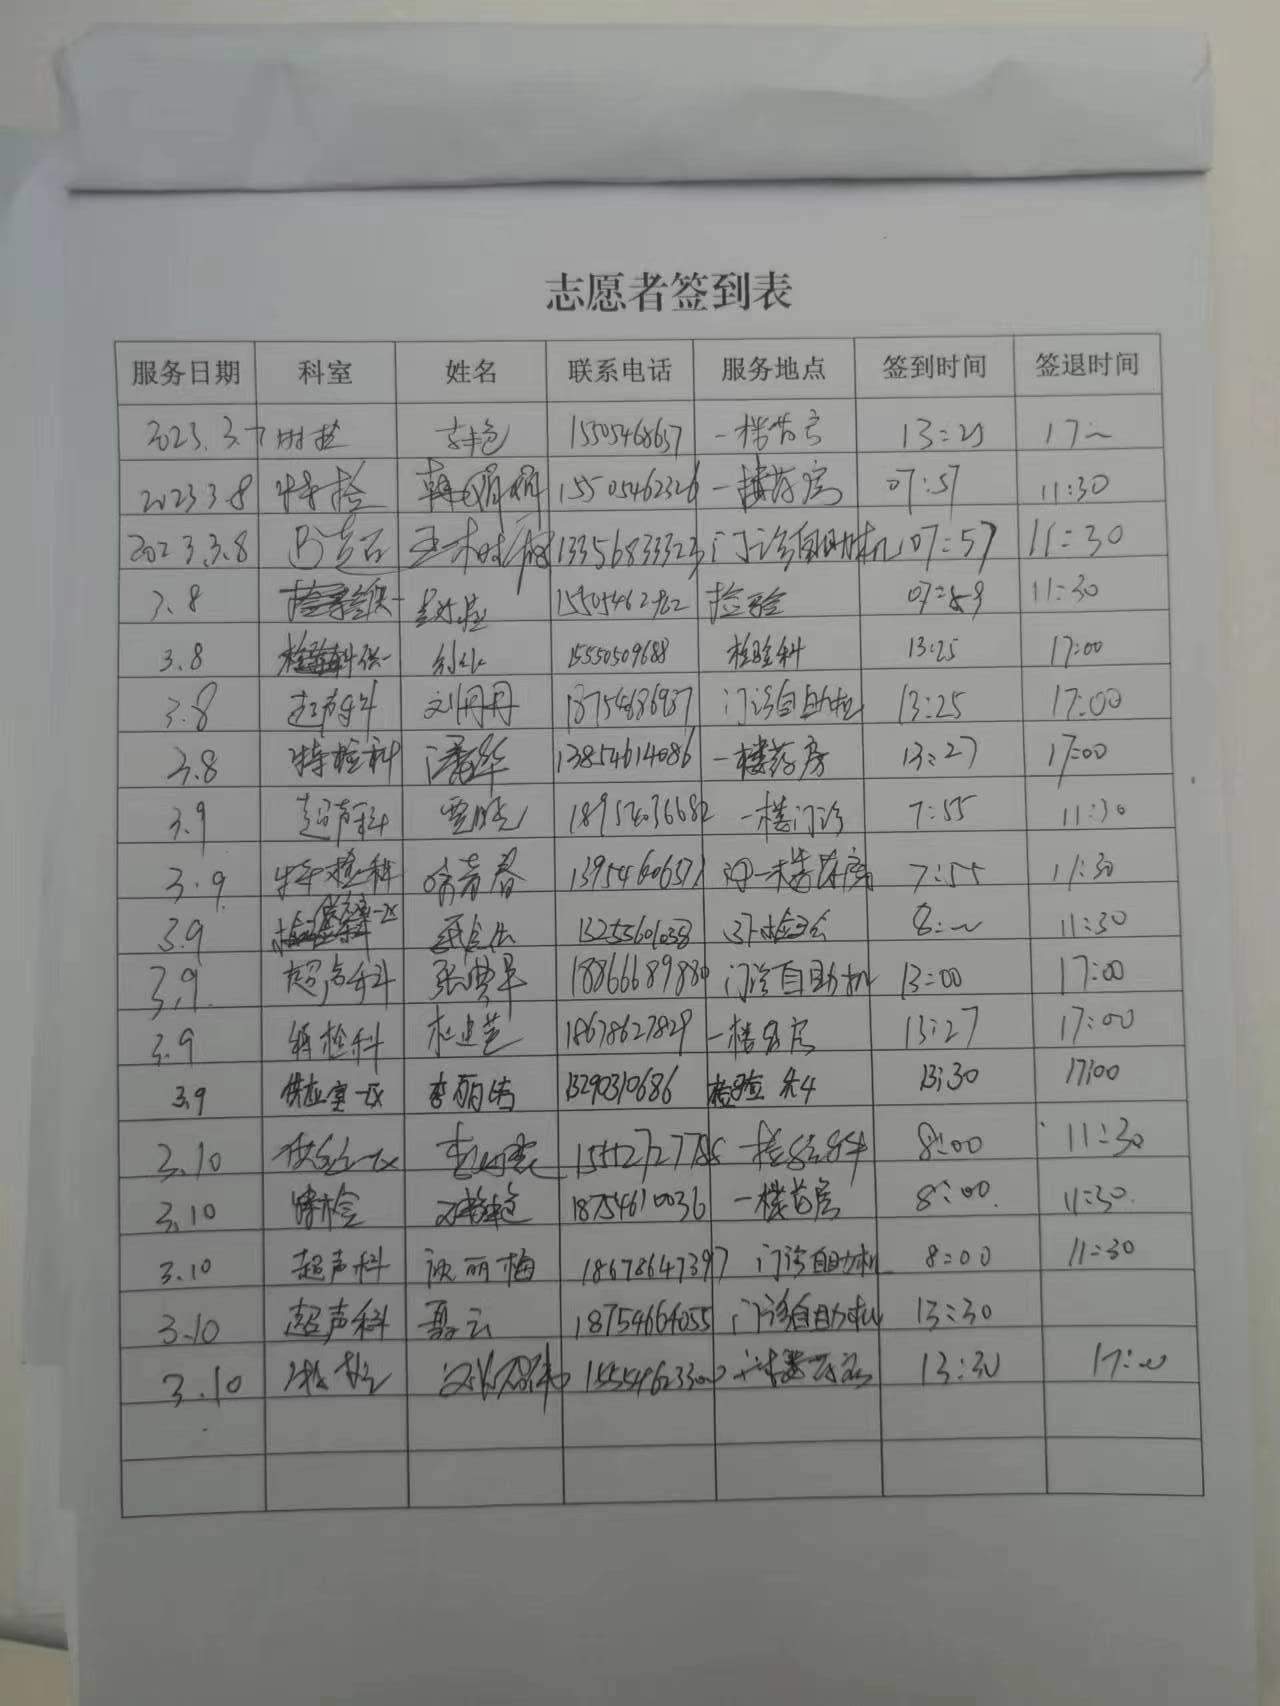 志愿者签到表
服务日期 科室 姓名 联系电话 服务地点 签到时间 签退时间
2023.3.7 15505468657 一楼药房 13:25 17:
2023 3.8 特检 韩娟娟 15505462326 一楼药房 07:57 11:30
2023.3.8 B超 13356833323 门诊自助机 07:57 11:30
3.8 检验 07:59 11:30
3.8 15550509688 检验科 13:25 17:00
3.8 超声科 刘丹丹 18754686937 门诊自助机 13:25 17:00
3.8 特检科 潘华 13854614086 一楼药房 13:27 17:00
3.9 超声科 贾晓 一楼门诊 7:55 11:30
3.9 特检科 徐青春 一楼药房 7:55 11:30
3.9 13255601038 8: 11:30
3.9 超声科 18866689880 门诊自助机 13:00 17:00
3.9 特检科 杜建芝 18678627829 一楼药房 13:27 17:00
3.9 供应室一区 李丽洁 13290310686 检验科 13:30 17:00
3.10 15552727786 检验科 8:00 11:30
3.10 特检 18754610036 一楼药房 8:00 11:30
3.10 超声科 丽梅 18678647397 门诊自助机 8:00 11:30
3.10 超声科 聂云 18754664055 门诊自助机 13:30
3.10 13:30 17:00